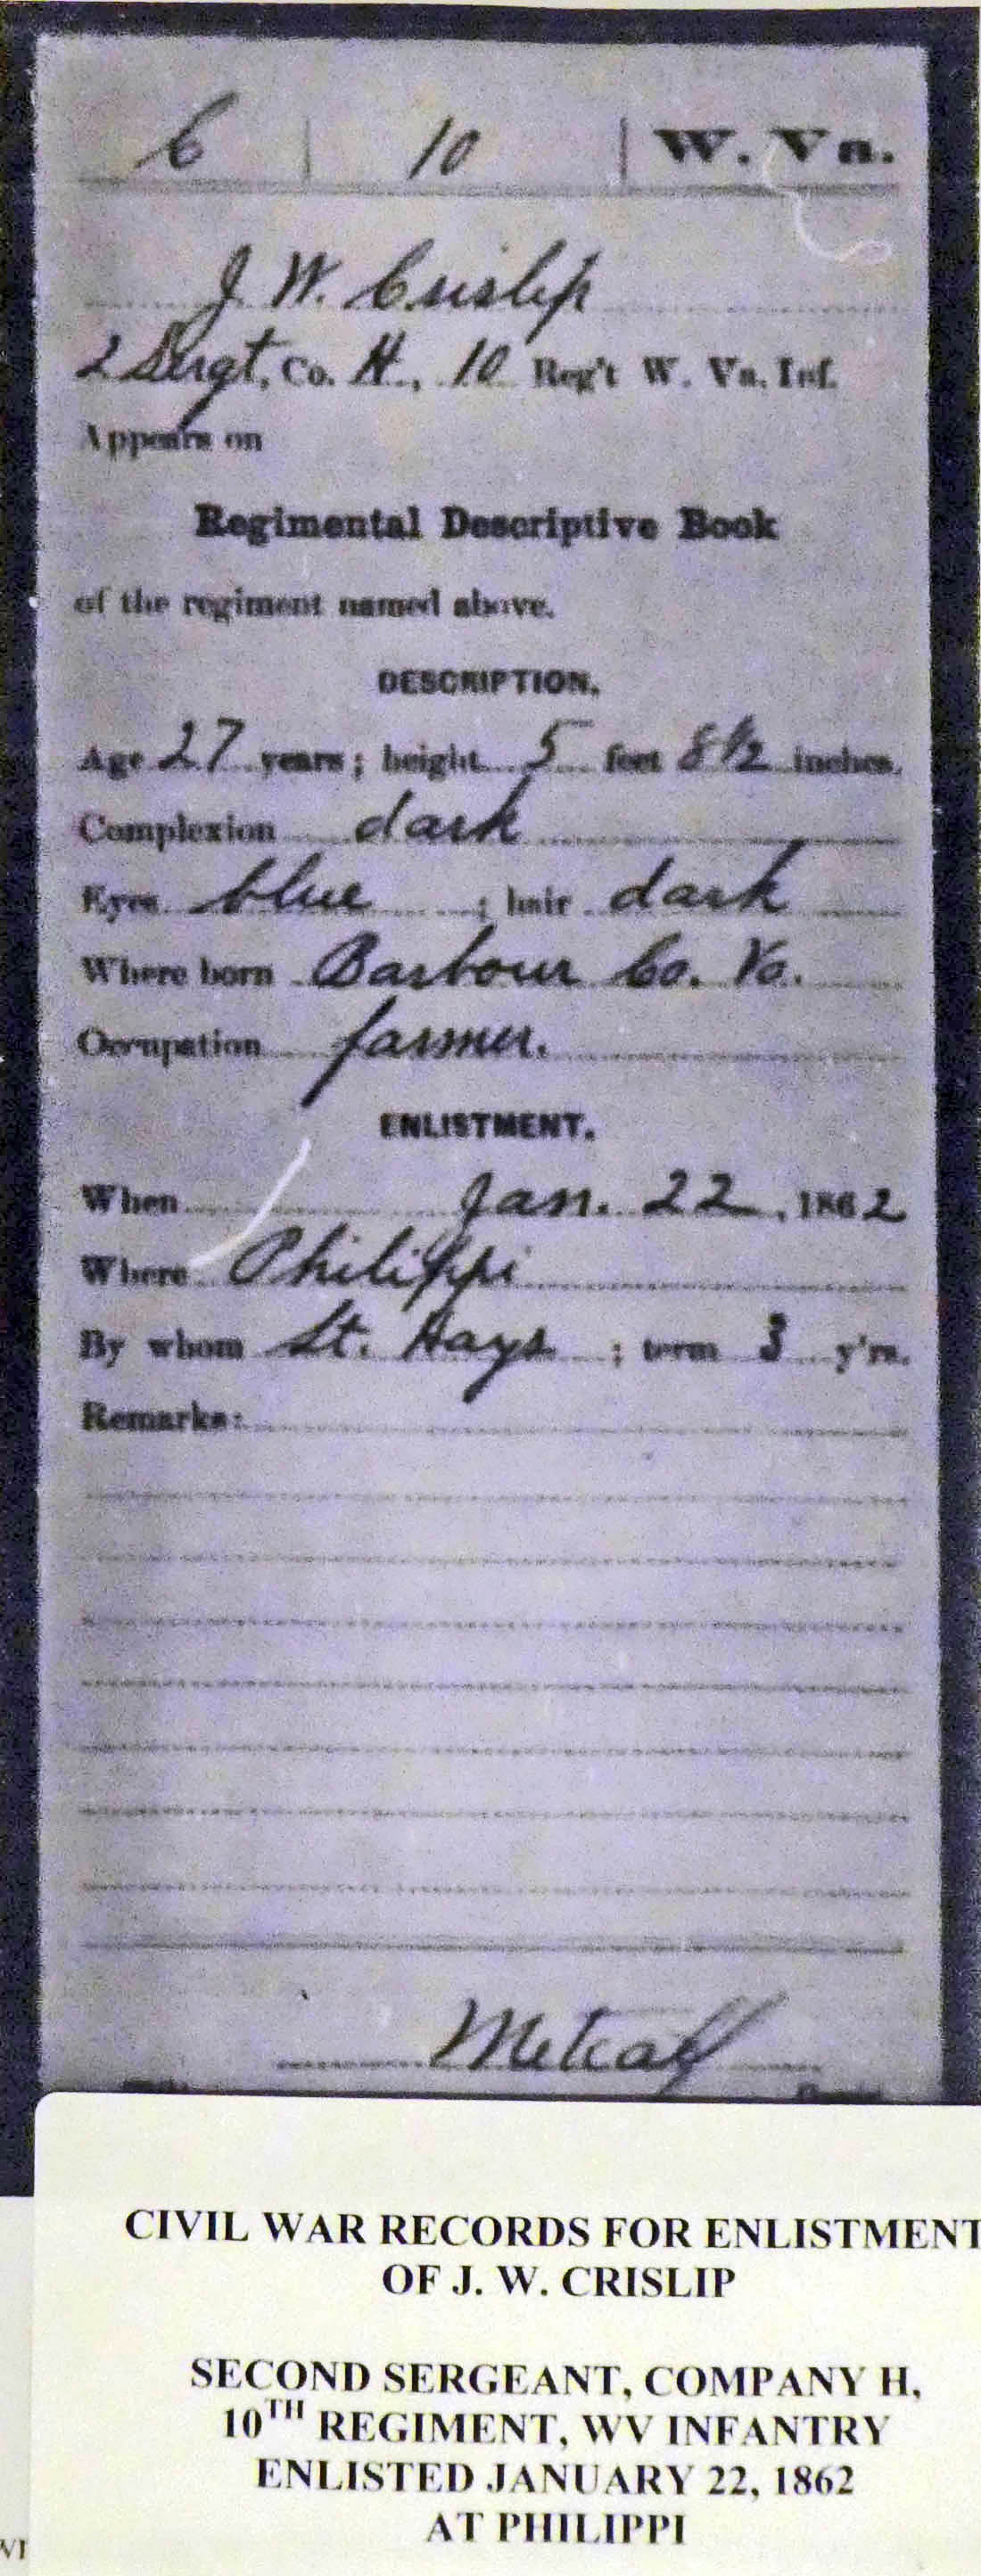 C | 10 | W. Va.
J. W. Crislip
2 Sergt., Co. H., 10 Reg't W. Va. Inf.
Appears on
Regimental Descriptive Book
of the regiment named above.
DESCRIPTION.
Age 27 years; height 5 feet 8 1/2 inches.
Complexion dark
Eyes blue ; hair dark
Where born Barbour Co. Va.
Occupation farmer.
ENLISTMENT.
When Jan. 22, 1862
Where Philippi
By whom Lt. Hays ; term 3 y'rs.
Remarks:
Metcalf
CIVIL WAR RECORDS FOR ENLISTMENT
OF J. W. CRISLIP
SECOND SERGEANT, COMPANY H,
10TH REGIMENT, WV INFANTRY
ENLISTED JANUARY 22, 1862
AT PHILIPPI